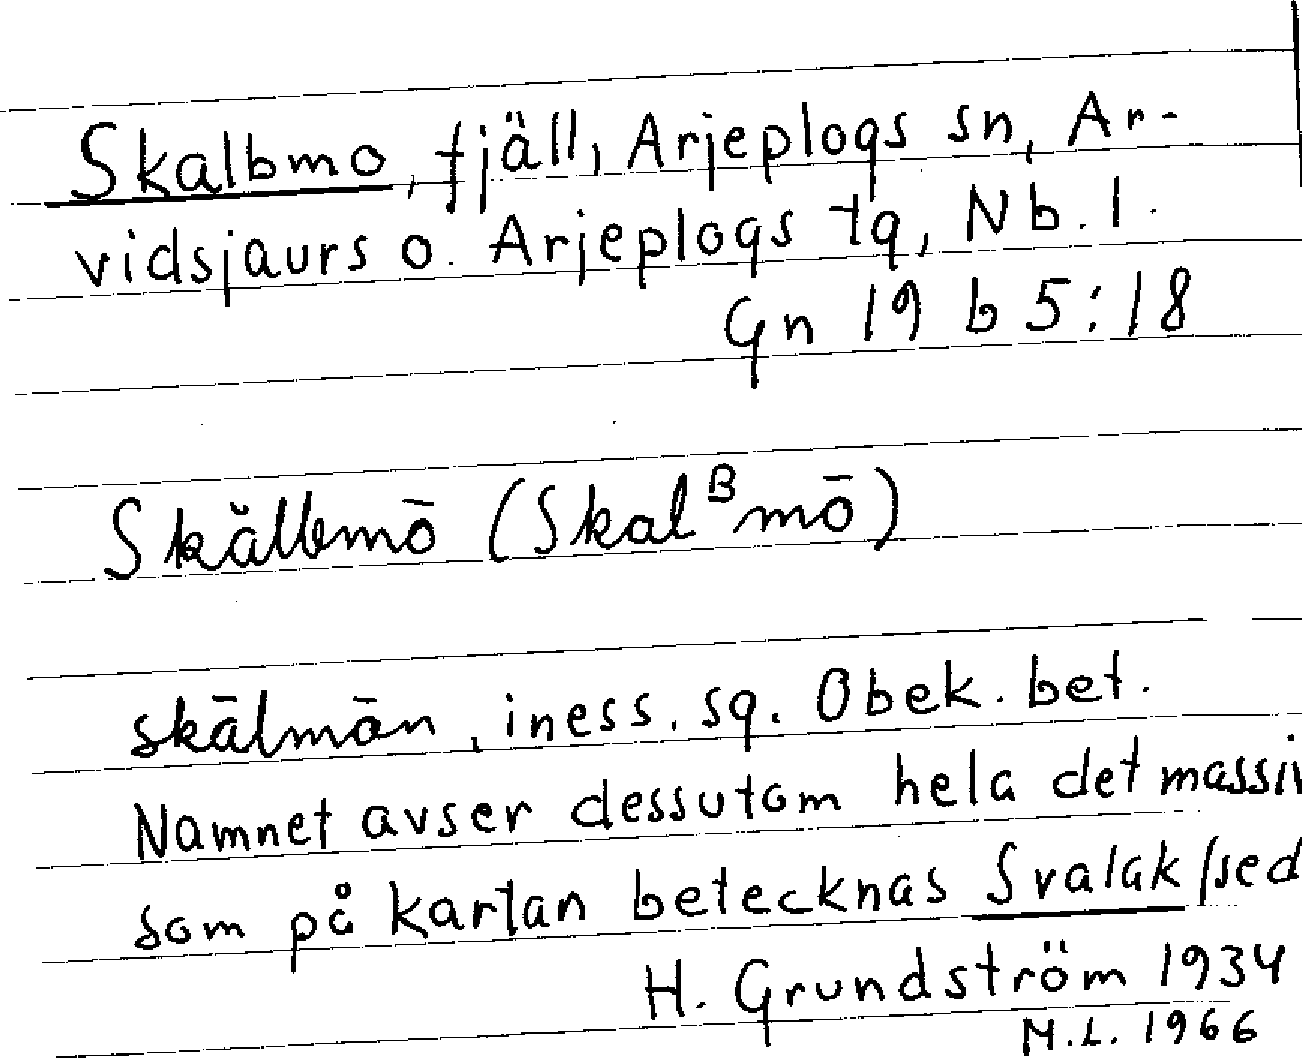 Skalbmo, fjäll, Arjeplogs sn, Ar-
vidsjaurs o. Arjeplogs tg, Nb. l.
Gn 19 b 5:18
Skălbmō (Skalᴮmō)
skālmōn, iness. sg. Obek. bet.
Namnet avser dessutom hela det massiv
som på kartan betecknas Svalak
H. Grundström 1934
M.L. 1966